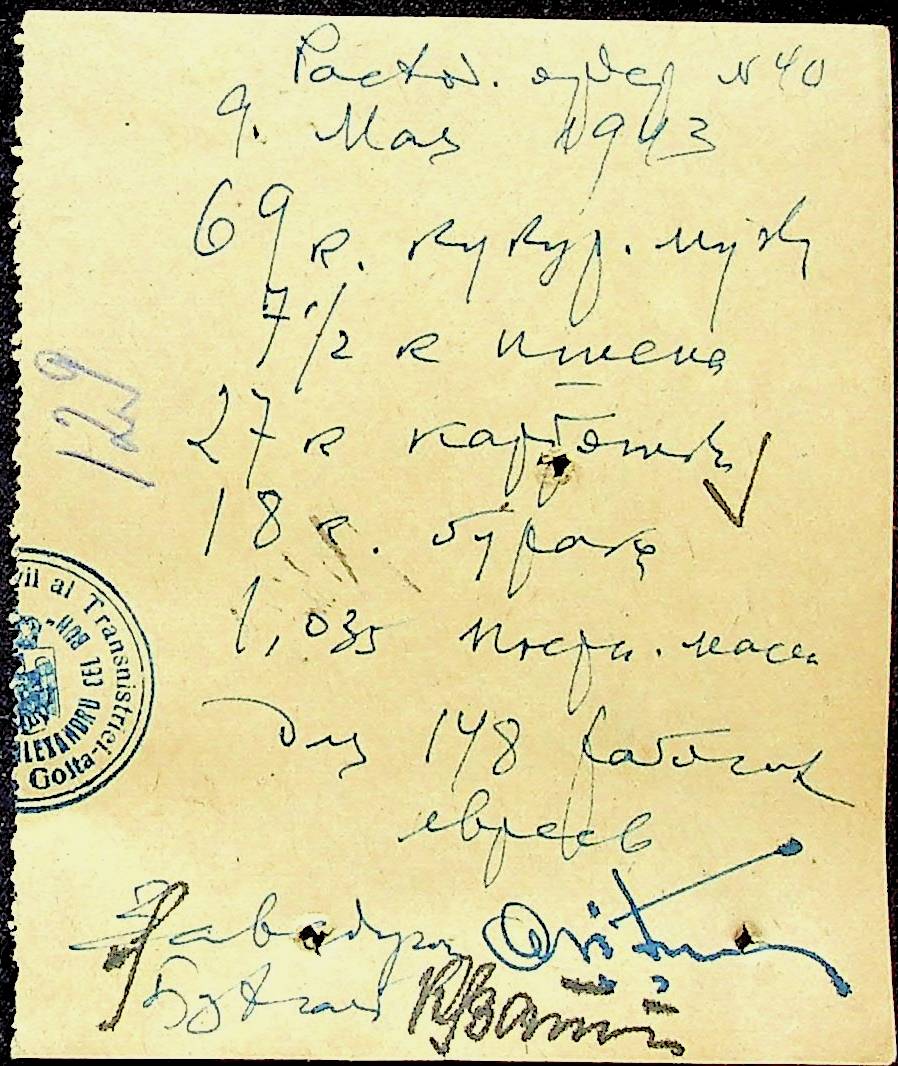 Расход. ордер N 40
9. Мая 1943
69 к. кукур. муки
7 1/2 к пшена
27 к картошки
18 к. бурака
1,035 постн. масл
Для 148 рабочих
евреев
Завед
129
vil al Transnistriei
ALEXANDRU CEL BUN"
Golta